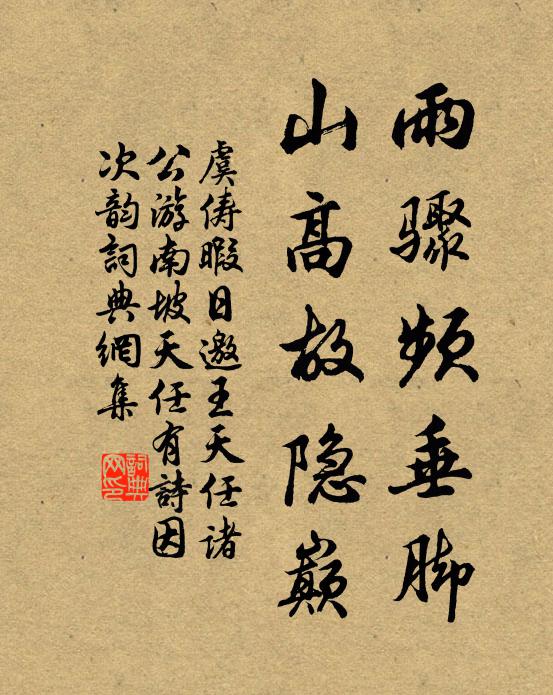 雨骤频垂脚
山高故隐巅
虞俦暇日邀王天任诸
公游南坡天任有詩因
次韵詞典網集
詞典
网印